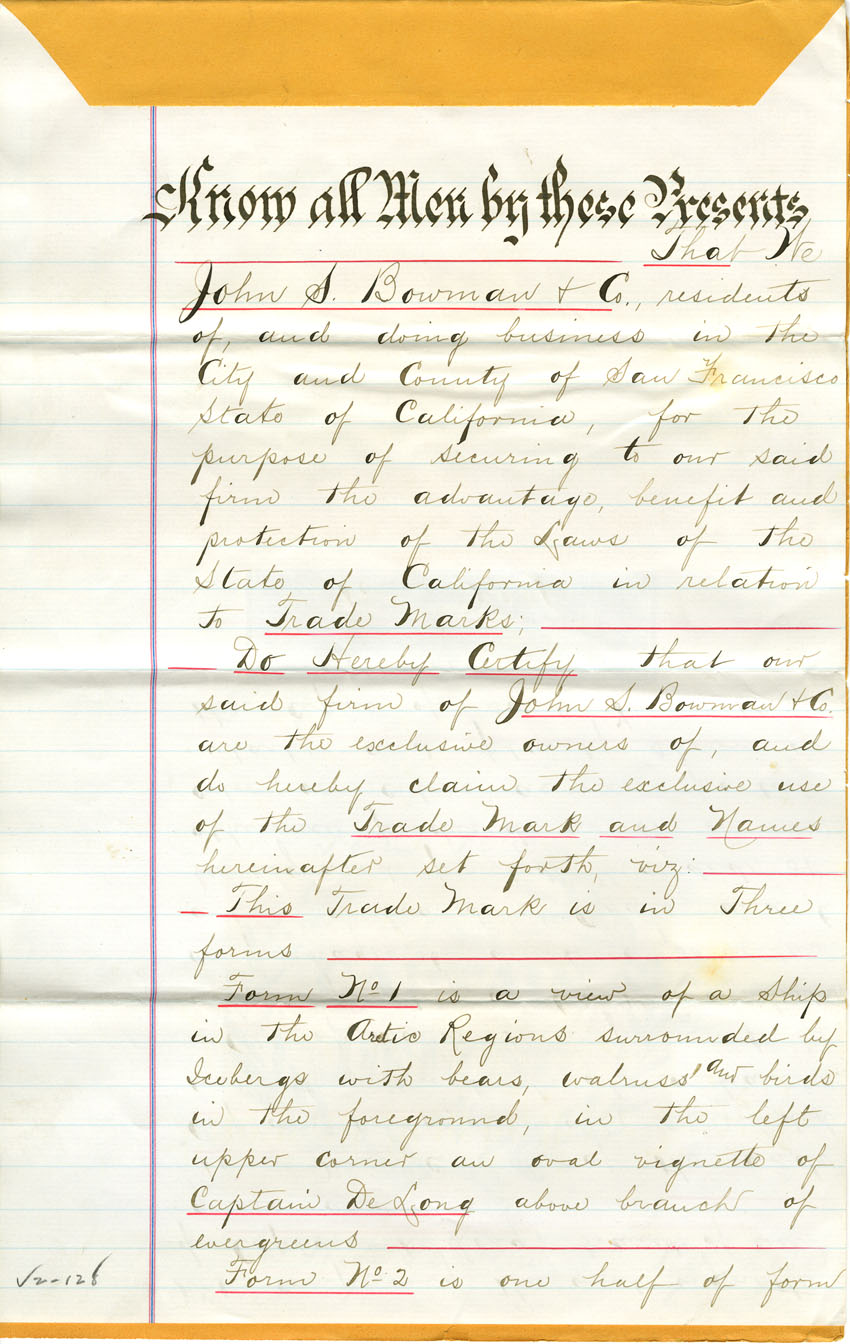 Know all Men by these Presents
That We
John S. Bowman & Co., residents
of, and doing business in the
City and County of San Francisco
State of California, for the
purpose of securing to our said
firm the advantage, benefit and
protection of the Laws of the
State of California in relation
to Trade Marks;
Do Hereby Certify that our
said firm of John S. Bowman & Co.
are the exclusive owners of, and
do hereby claim the exclusive use
of the Trade Mark and Names
hereinafter set forth, viz:
This Trade Mark is in Three
forms
Form No. 1 is a view of a Ship
in the Arctic Regions surrounded by
Icebergs with bears, walruss' and birds
in the foreground, in the left
upper corner an oval vignette of
Captain De Long above branch of
evergreens
Form No. 2 is one half of form